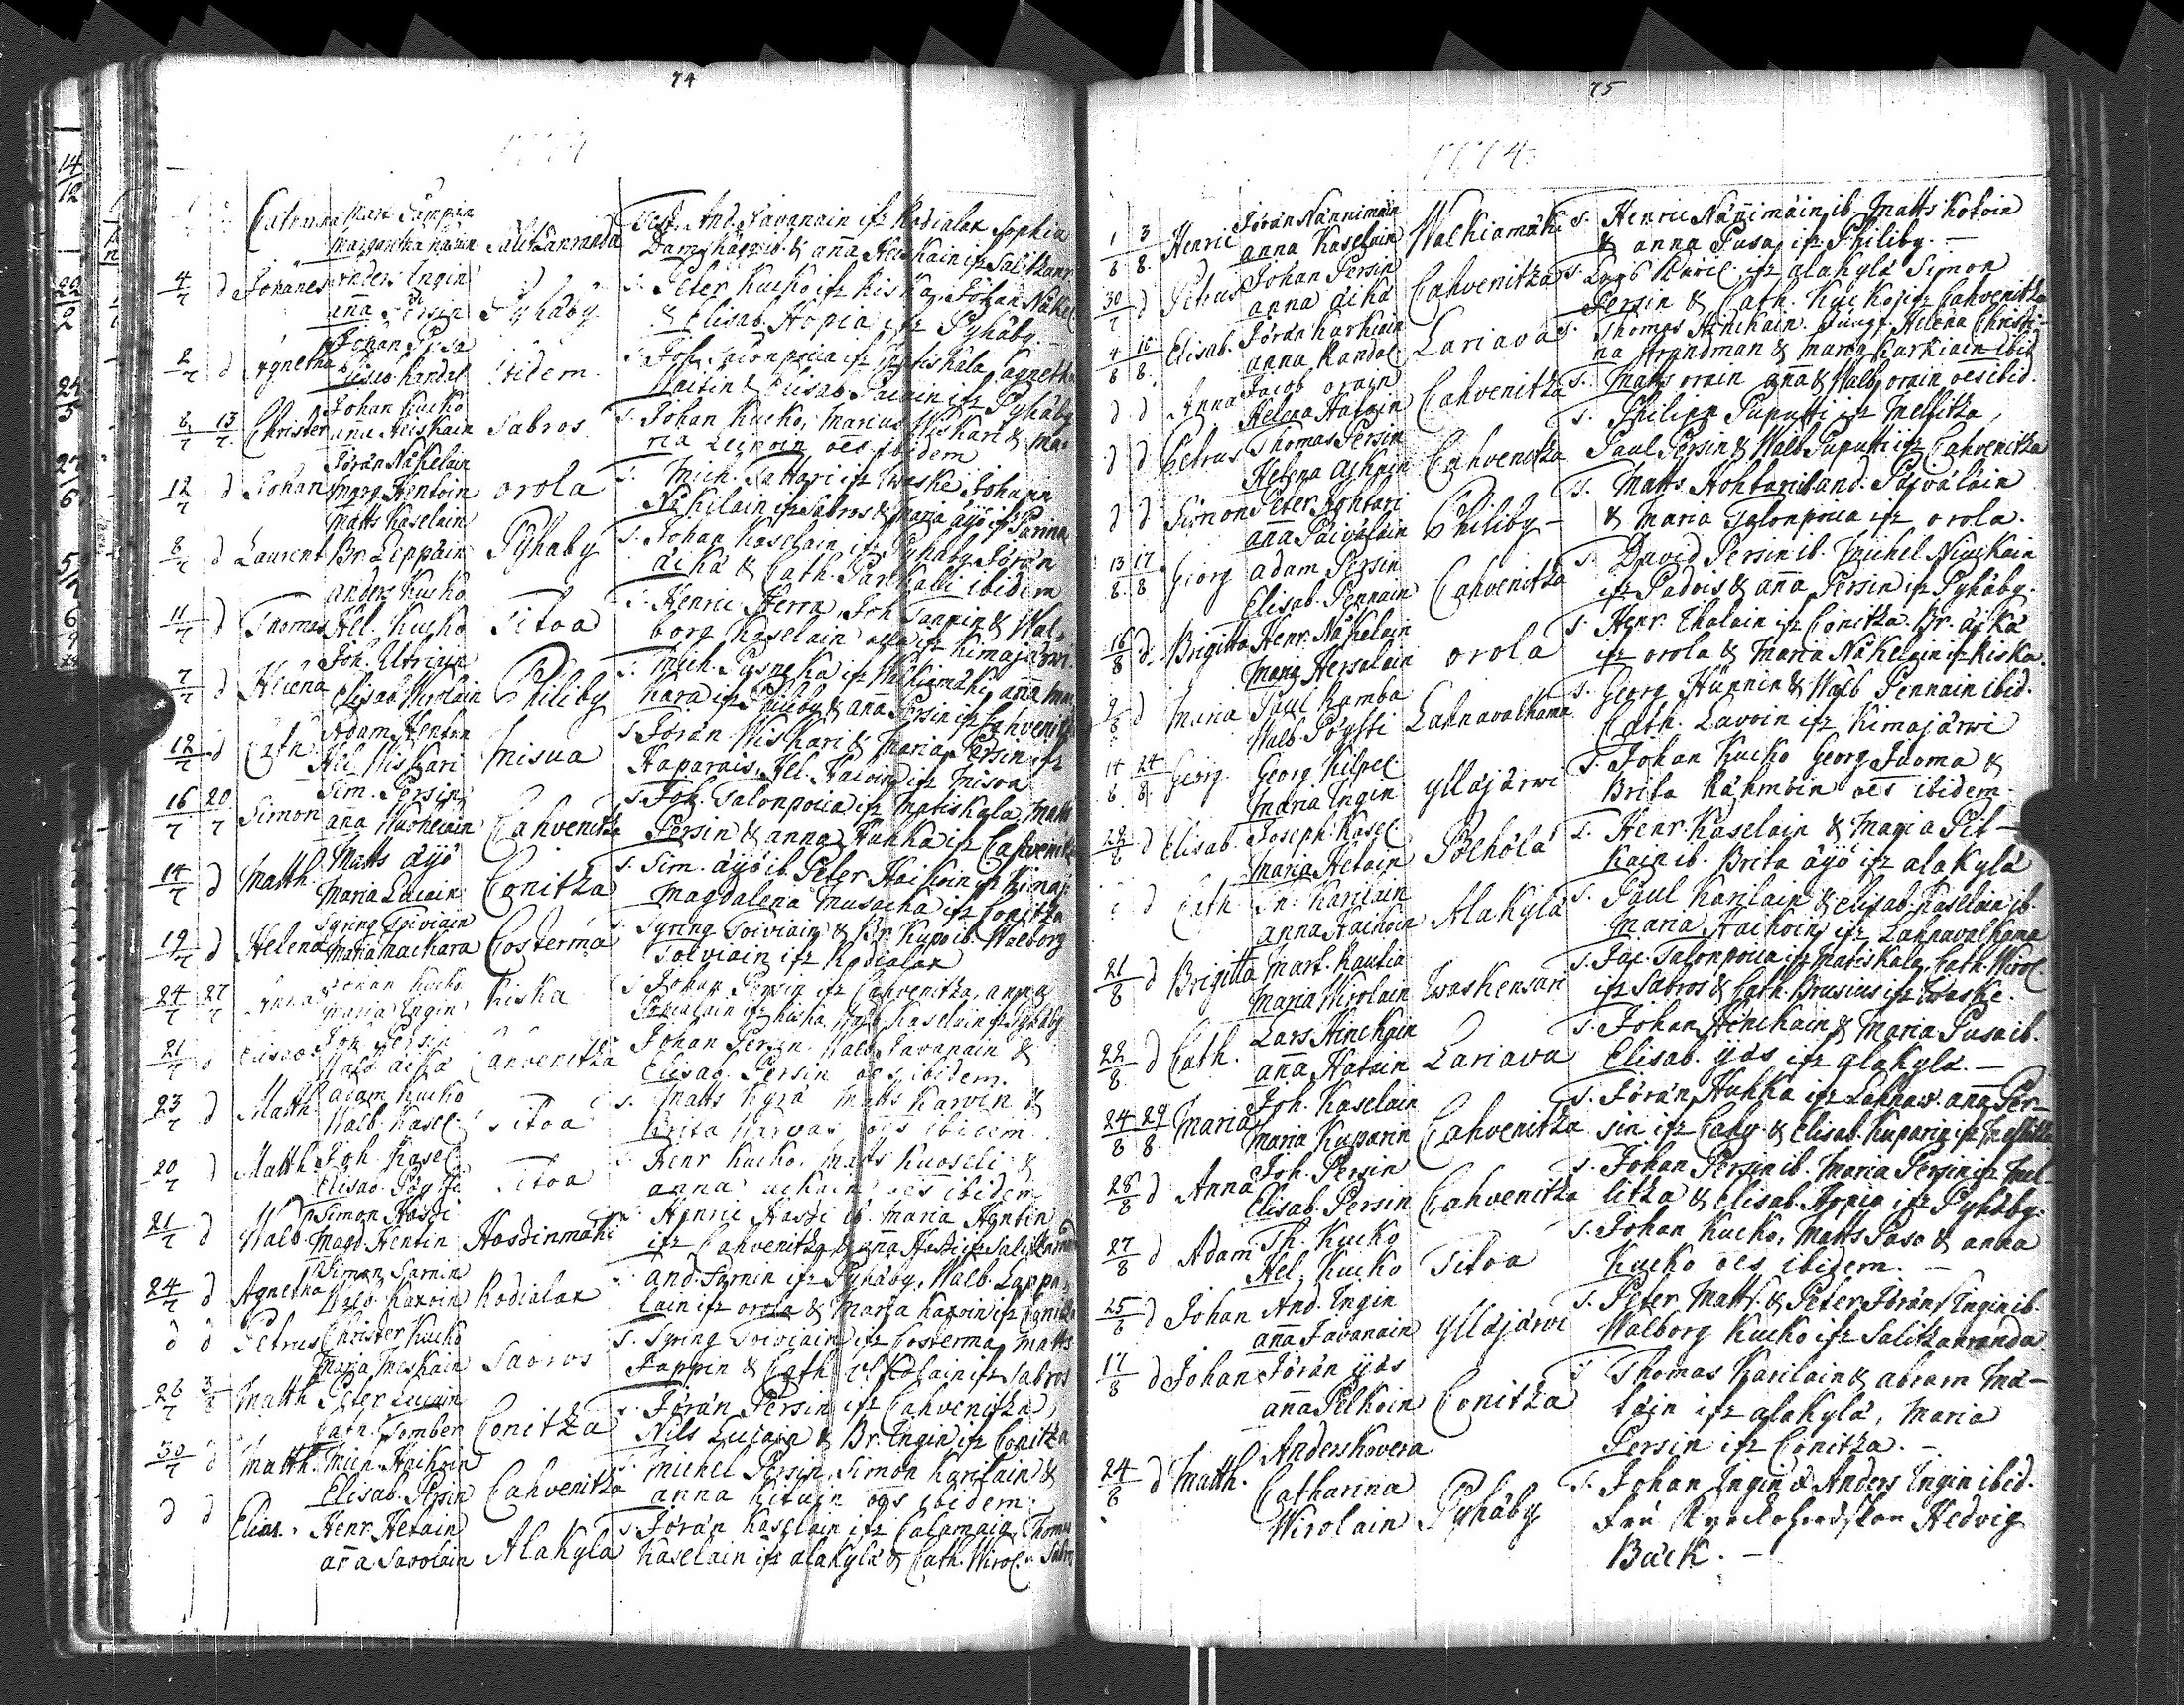 74
Catharina Mart. Lämpin
Margaretha Näkin Salitzanranda
Test. And. Javanain ifr Kodialax Sophia
Dam & anna Heiskain ifr Salitzanr
4/7 d Johanes Anders Ingin
anna Persin Pyhäby
s. Peter Kucko ifr Kiska, Johan Näkel
& Elisab. Hopia ifr Pyhäby.
2/7 d Agnetha Johan Pusa
Elisab. Kandal ibidem
s. Joh. Talonpoica ifr Matiskala Agnetha
& Elisab. Paiain ifr Pyhäby
8/7 13/7 Christer Johan Kucko
anna Heiskain Sabros
s. Johan Kucko, Marcus Wiskari & Ma-
ria Leinoin oes ibidem
12/7 d Johan Jöran Näkelain
Marg. Hentoin orola
s. Mich. Tattari ifr Iwaske Johann
Näkilain ifr Sabros & Maria äyö ifr Parina
8/7 d Laurent Matts Kaselain
Br. Leppäin Pyhäby
s. Johan Kaselain ifr Pyhäby Jöran
äikä & Cath. Parikalli ibidem
11/7 d Thomas Anders Kucko
Hel. Kucko Titoa
s. Henric Herra, Joh Tanpin & Wal-
borg Kaselain alla ifr Kimajärwi
7/7 d Helena Joh. Utriain
Elisab. Wirolain Philiby
s. Mich. Pusneka ifr Walkiamäki, anna
ifr Philiby & anna Persin ifr Cahvenitz
12/7 d Cath. Adam Hentun
Hel. Wiskari Misua
s. Jöran Wiskari & Maria Persin ifr
Haparais, Hel. Haioin ifr Misoa
16/7 20/7 Simon Sim. Persin
anna Cahvenitza
s. Joh. Talonpoica ifr Matiskala, Matts
Persin & anna Hukka ifr Cahvenitz
14/7 d Matth. Matts äyö
Maria Luiain Conitza
s. Sim. äyö ib. Peter Haikoin ifr Kimaj.
Magdalena Musacka ifr Conitza
19/7 d Helena Syring Toiviain
Maria Mackara Costerma
s. Syring Toiviain & Br. Kupo ib. Walborg
Toiviain ifr Kodialax
24/7 27/7 Anna Johan Kucko
Maria Ingin Kiska
s. Johan Persin ifr Cahvenitza, anna
ifr Kiska, Walb. Kaselain ifr Pyhäby
21/7 d Elisab. Joh. Persin
Walb. äikä Cahvenitza
Johan Persin Walb. Javanain &
Elisab. Persin oes ibidem.
23/7 d Matth. adam Kucko
Walb. Kasel. Titoa
s. Matts Kyrä Matts Karvin &
Brita Karvas oes ibidem
20/7 d Matth. Joh. Kasel.
Elisab. Titoa
s. Henr Kucko, Matts Kuoseli &
anna aikain oes ibidem
21/7 d Walb. Simon Hasdi
Magd. Hentin Hasdinmäki
s. Henric Hasdi ib. Maria Hentin
ifr Cahvenitza & anna Hasdi ifr Salitzanrand
24/7 d Agnetha Simon Samin
Walb. Karoin Kodialax
s. and. Samin ifr Pyhäby, Walb. Lappa-
lain ifr orola & Maria Karoin ifr Conitza
d d Petrus Christer Kucko
Maria Meskain Sabros
s. Syring Toiviain ifr Costerma, Matts
Jappin & Cath. ifr Sabros
26/7 3/8 Matth Peter Luiain
Cath. Tomber Conitza
s. Jöran Persin ifr Cahvenitza
Nils Luiain & Br. Ingin ifr Conitza
30/7 d Matth. Mich. Haikoin
Elisab. Persin Cahvenitza
s. Michel Persin, Simon Karilain &
anna Kituin oes ibidem.
d d Elias. Henr. Hetain
anna Savolain Alakylä
s. Jöran Kaselain ifr Calamaia Thomas
Kaselain ifr alakylä & Cath. Wirol. Sabr.
75
1774.
1/8 3/8. Henric Jöran Nännimäin
anna Kaselain Walkiamäki
s. Henric Nännimäin ib. Matts Kotoin
& anna Pusa ifr Philiby. —
30/7 d Petrus Johan Persin
anna äikä Cahvenitza
s. Lars Karil. ifr alakylä Simon
Persin & Cath. Kucko ifr Cahvenitza
4/8 10/8. Elisab. Jöran Karkiain
anna Kandal Lariava
s. Thomas Hinckain. Jungf. Helena Christi-
na Strandman & Maria Karkiain ibid
d d Anna Jacob orain
Helena Hatain Cahvenitza
s. Matts orain anna & Walb. orain oes ibid.
d d Petrus Thomas Persin
Helena Cahvenitza
s. Philipp Puputti ifr Mellitza,
Paul Persin & Walb. Puputti ifr Cahvenitza
d d Simon Peter Hohtari
anna Päivälain Philiby —
s. Matts Hohtari ib and. Päivälain
& Maria Talonpoica ifr orola.
13/8. 17/8 Georg adam Persin
Elisab. Pennain Cahvenitza
s. David Persin ib. Michel Nuickain
ifr Padois & anna Persin ifr Pyhäby.
16/8 d. Brigitta Henr. Näkelain
Maria Hersalain orola
s. Henr. Thalain ifr Conitza. Br. äikä
ifr orola & Maria Näkelain ifr Kiska.
9/8 d Maria Paul Ramba
Walb. Pöysti Lahnavalkama
s. Georg Hännin & Walb Pennain ibid.
Cath. Lavoin ifr Kimajärwi
14/8 24/8. Georg. Georg Kilpel.
Maria Ingin Ylläjärwi
s. Johan Kucko Georg Juoma &
Brita Rähmöin oes ibidem.
22/8 d Elisab. Joseph. Kasel.
Maria Hetain Pölhölä
s. Henr. Kaselain & Maria Pit-
kain ib. Brita äyö ifr alakylä
d Cath. Karilain
anna Haikoin Alakylä
s. Paul Karilain & elisab. Kaselain ib.
Maria Haikoin ifr Lahnavalkama
21/8 d Brigitta Mart. Rautia
Maria Wirolain Iwaskensari
s. Jac. Talonpoica ifr Matiskala, Cath. Wirol.
ifr Sabros & Cath. Brusius ifr Iwaske.
22/8 d Cath. Lars Hinckain
anna Hatain Lariava
s. Johan Hinckain & Maria Pusa ib.
Elisab. ijäs ifr alakylä. —
24/8 29/8. Maria Joh. Kaselain
Maria Kuparin Cahvenitza
s. Jöran Hukka ifr Lahnav. anna Per-
sin ifr Cahv. & Elisab. Kuparin ifr Mellitza
28/8 d Anna Joh. Persin
Elisab. Persin Cahvenitza
s. Johan Persin ib. Maria Persin ifr Mel-
litza & Elisab. Hopia ifr Pyhäby.
27/8 d Adam Th. Kucko
Hel. Kucko Titoa
s. Johan Kucko, Matts Paso & anna
Kucko oes ibidem. —
25/8 d Johan And. Ingin
anna Javanain Ylläjärvi
s. Peter Matts. & Peter Jörans Ingin ib.
Walborg Kucko ifr Salitzanranda
17/8 d Johan Jöran ijäs
anna Pelkoin Conitza
s. Thomas Karilain & abram Mä-
läin ifr alakylä, Maria
Persin ifr Conitza. —
24/8 d Matth. Anders Kovera
Catharina
Wirolain Pyhäby
s. Johan Ingin & Anders Ingin ibid.
Hedvig
Bäck. —